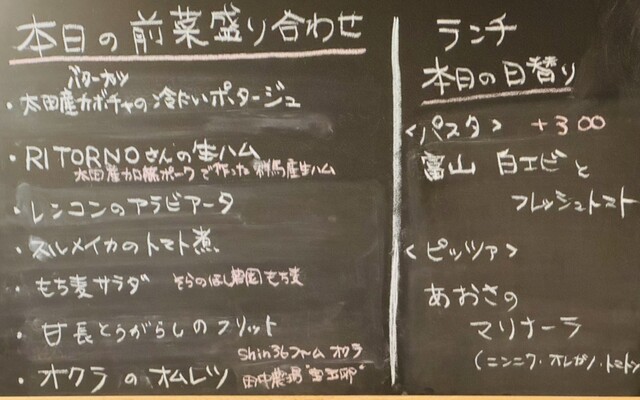 本日の前菜盛り合わせ
バターナッツ
・太田産カボチャの冷たいポタージュ
・RITORNOさんの生ハム
太田産 ポークで作った群馬産生ハム
・レンコンのアラビアータ
・スルメイカのトマト煮
・もち麦サラダ そらのほし農園もち麦
・甘長とうがらしのフリット
Shin36ファーム オクラ
・オクラのオムレツ 田中農場"宝玉卵"
ランチ
本日の日替り
<パスタ> +300
富山 白エビと
フレッシュトマト
<ピッツァ>
あおさの
マリナーラ
(ニンニク・オレガノ・トマト)